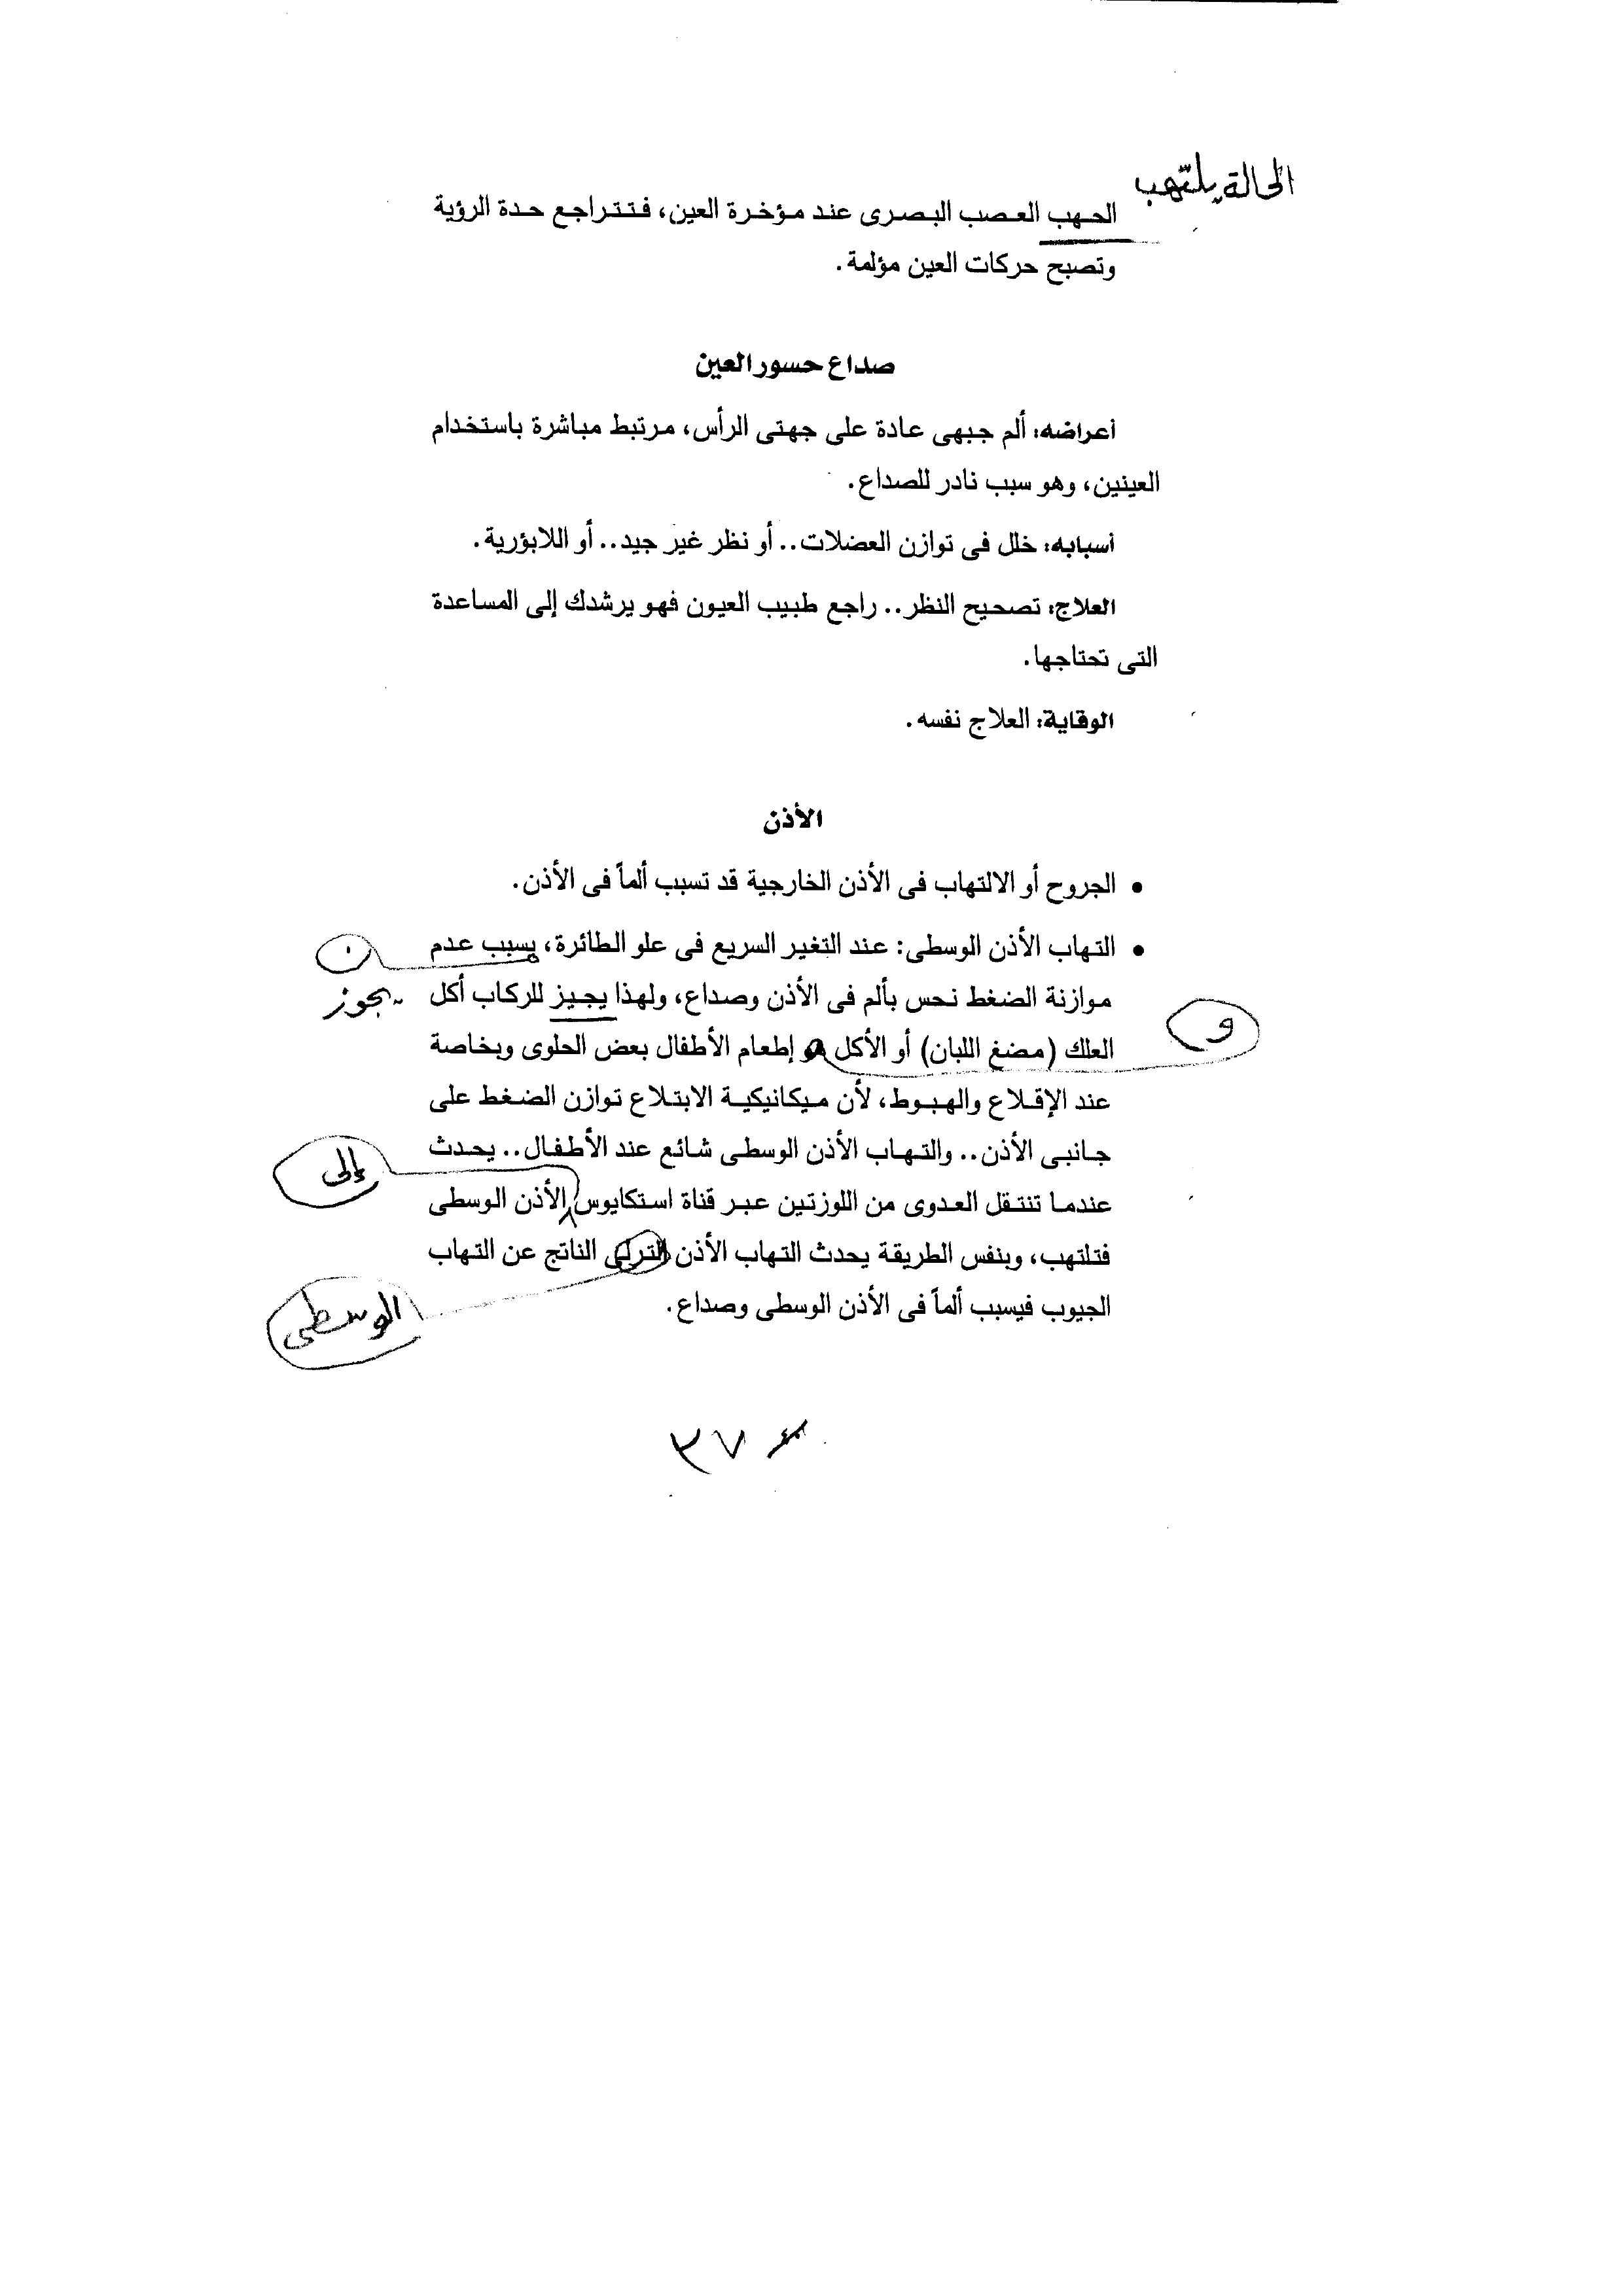 الحالة يلتهب
الحهب العصب البصرى عند مؤخرة العين، فتتراجع حدة الرؤية
وتصبح حركات العين مؤلمة.
صداع حسور العين
أعراضه: ألم جبهى عادة على جهتى الرأس، مرتبط مباشرة باستخدام
العينين، وهو سبب نادر للصداع.
أسبابه: خلل فى توازن العضلات.. أو نظر غير جيد.. أو اللابؤرية.
العلاج: تصحيح النظر.. راجع طبيب العيون فهو يرشدك إلى المساعدة
التى تحتاجها.
الوقاية: العلاج نفسه.
الأذن
• الجروح أو الالتهاب فى الأذن الخارجية قد تسبب ألماً فى الأذن.
• التهاب الأذن الوسطى: عند التغير السريع فى علو الطائرة، يسبب عدم
موازنة الضغط نحس بألم فى الأذن وصداع، ولهذا يجيز للركاب أكل
يجوز
العلك (مضغ اللبان) أو الأكل و إطعام الأطفال بعض الحلوى وبخاصة
و
عند الإقلاع والهبوط، لأن ميكانيكية الابتلاع توازن الضغط على
جانبى الأذن.. والتهاب الأذن الوسطى شائع عند الأطفال.. يحدث
إلى
عندما تنتقل العدوى من اللوزتين عبر قناة استكايوس الأذن الوسطى
فتلتهب، وبنفس الطريقة يحدث التهاب الأذن النزلى الناتج عن التهاب
الوسطى
الجيوب فيسبب ألماً فى الأذن الوسطى وصداع.
٣٧